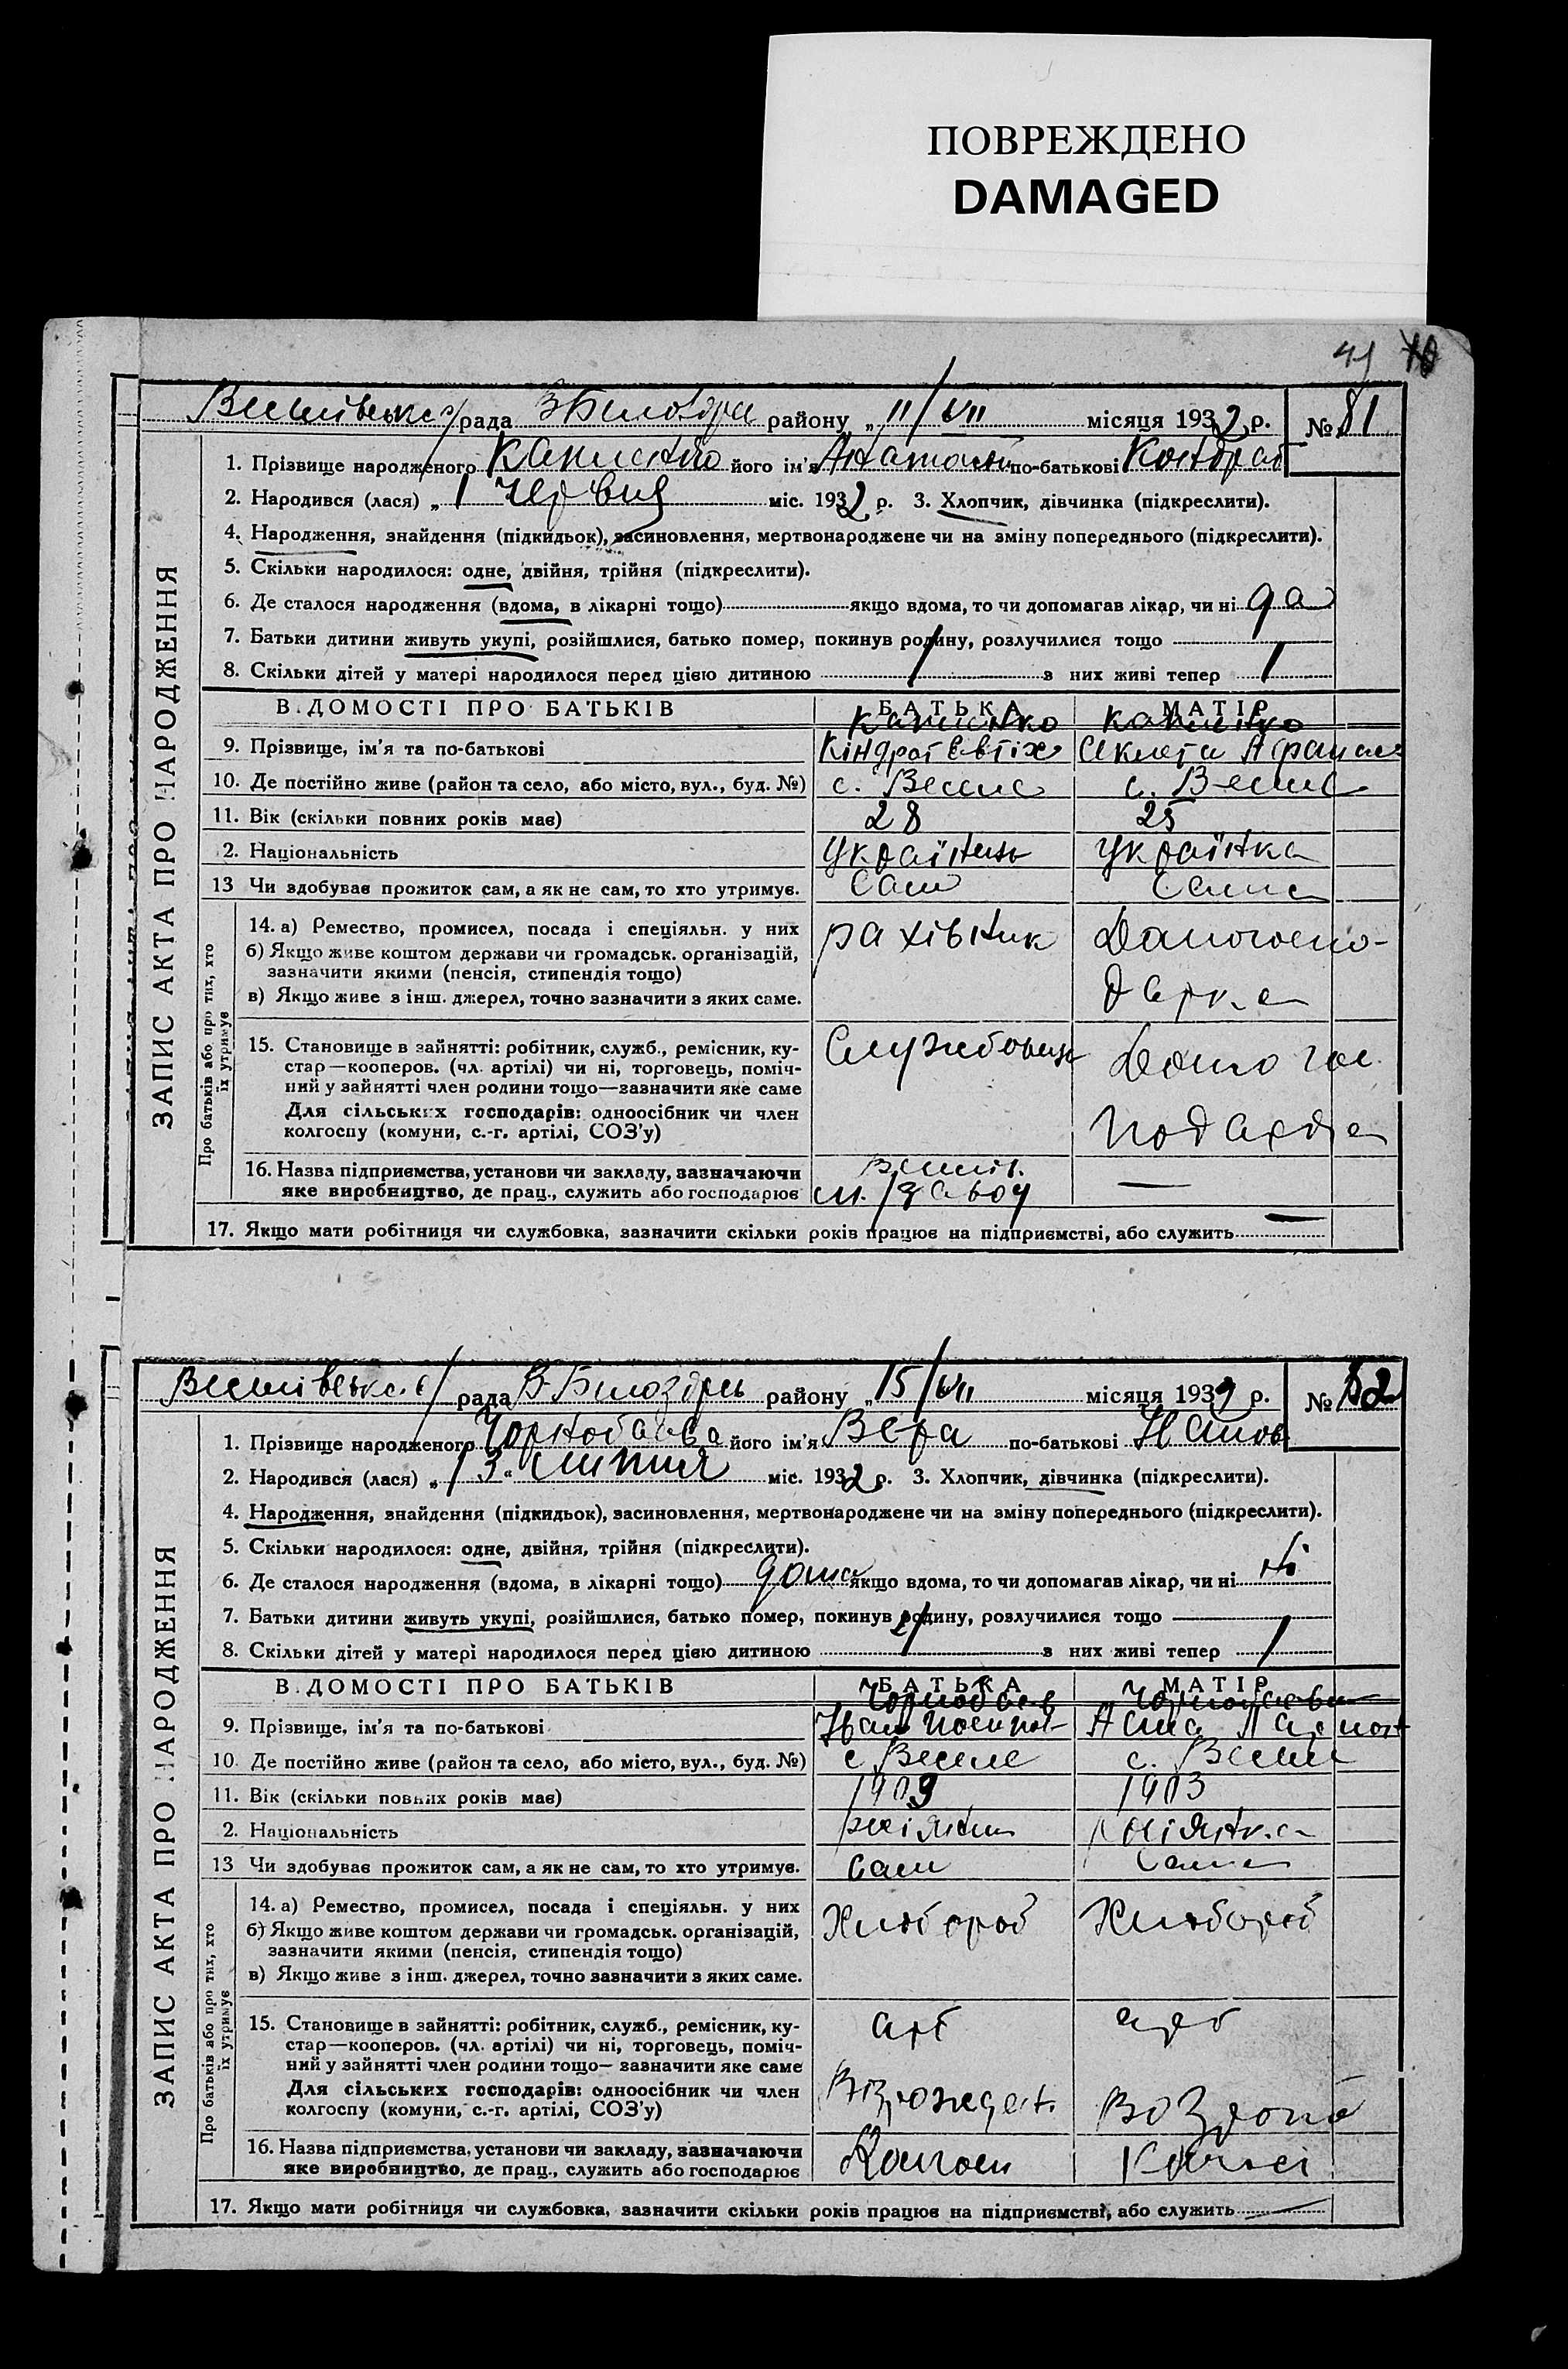 ПОВРЕЖДЕНО
DAMAGED
41
рада району „11/VII місяця 1932 р. № 81
1. Прізвище народженого його ім'я по-батькові Кондрат
2. Народився (лася) „1 Червня міс. 1932 р. 3. Хлопчик, дівчинка (підкреслити).
4. Народження, знайдення (підкидьок), засиновлення, мертвонароджене чи на зміну попереднього (підкреслити).
5. Скільки народилося: одне, двійня, трійня (підкреслити).
6. Де сталося народження (вдома, в лікарні тощо) якщо вдома, то чи допомагав лікар, чи ні да
7. Батьки дитини живуть укупі, розійшлися, батько помер, покинув родину, розлучилися тощо
8. Скільки дітей у матері народилося перед цією дитиною 1 з них живі тепер 1
ЗАПИС АКТА ПРО НАРОДЖЕННЯ
В.ДОМОСТІ ПРО БАТЬКІВ БАТЬКА МАТІР
9. Прізвище, ім'я та по-батькові Кіндрат Євтіх
10. Де постійно живе (район та село, або місто, вул., буд. №) с. Веселе с. Веселе
11. Вік (скільки повних років має) 28 25
2. Національність Українець Українка
13 Чи здобуває прожиток сам, а як не сам, то хто утримує. Сам Сама
Про батьків або про тих, хто їх утримує
14. а) Ремество, промисел, посада і спеціяльн. у них рахівник Домогоспо-
б) Якщо живе коштом держави чи громадськ. організацій,
зазначити якими (пенсія, стипендія тощо) дарка
в) Якщо живе з інш. джерел, точно зазначити з яких саме.
15. Становище в зайнятті: робітник, служб., ремісник, ку- Службовець Домо гос
стар—кооперов. (чл. артілі) чи ні, торговець, поміч-
ний у зайнятті член родини тощо—зазначити яке саме
Для сільських господарів: одноосібник чи член
колгоспу (комуни, с.-г. артілі, СОЗ'у)
16. Назва підприємства, установи чи закладу, зазначаючи
яке виробництво, де прац., служить або господарює —
17. Якщо мати робітниця чи службовка, зазначити скільки років працює на підприємстві, або служить —
рада району „15/VII місяця 1932 р. № 82
1. Прізвище народженого Чорнобаєва його ім'я Вера по-батькові Іванов
2. Народився (лася) „13" липня міс. 1932 р. 3. Хлопчик, дівчинка (підкреслити).
4. Народження, знайдення (підкидьок), засиновлення, мертвонароджене чи на зміну попереднього (підкреслити).
5. Скільки народилося: одне, двійня, трійня (підкреслити).
6. Де сталося народження (вдома, в лікарні тощо) дома якщо вдома, то чи допомагав лікар, чи ні ні
7. Батьки дитини живуть укупі, розійшлися, батько помер, покинув родину, розлучилися тощо
8. Скільки дітей у матері народилося перед цією дитиною 1 з них живі тепер 1
ЗАПИС АКТА ПРО НАРОДЖЕННЯ
В.ДОМОСТІ ПРО БАТЬКІВ БАТЬКА МАТІР
Чорнобаєв Чорнобаєва
9. Прізвище, ім'я та по-батькові Іван
10. Де постійно живе (район та село, або місто, вул., буд. №) с. Веселе с. Веселе
11. Вік (скільки повних років має) 1909 1903
2. Національність росіянин росіянка
13 Чи здобуває прожиток сам, а як не сам, то хто утримує. Сам Сама
Про батьків або про тих, хто їх утримує
14. а) Ремество, промисел, посада і спеціяльн. у них Хлібороб Хлібороб
б) Якщо живе коштом держави чи громадськ. організацій,
зазначити якими (пенсія, стипендія тощо)
в) Якщо живе з інш. джерел, точно зазначити з яких саме.
15. Становище в зайнятті: робітник, служб., ремісник, ку- арт арт
стар—кооперов. (чл. артілі) чи ні, торговець, поміч-
ний у зайнятті член родини тощо—зазначити яке саме
Для сільських господарів: одноосібник чи член
колгоспу (комуни, с.-г. артілі, СОЗ'у)
16. Назва підприємства, установи чи закладу, зазначаючи
яке виробництво, де прац., служить або господарює
17. Якщо мати робітниця чи службовка, зазначити скільки років працює на підприємстві, або служить —